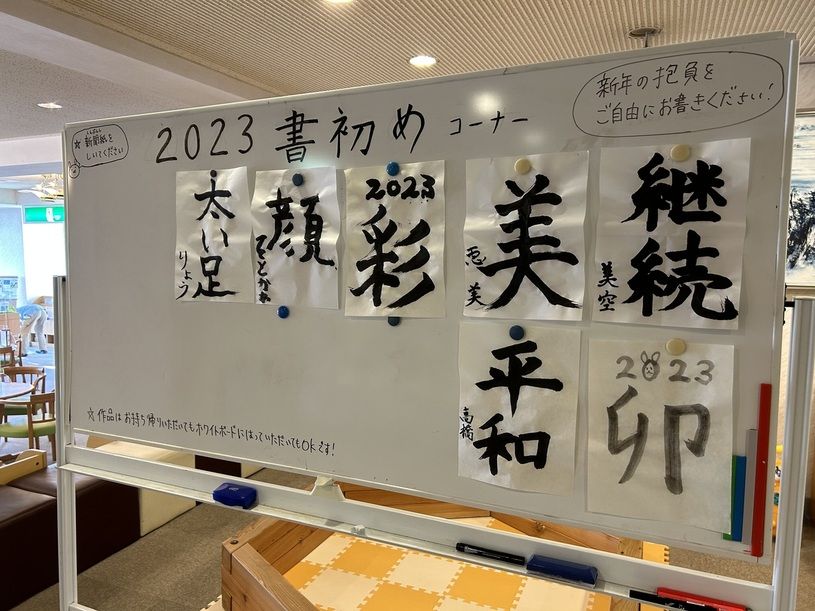 2023 書初め コーナー
新年の抱負を
ご自由にお書きください!
☆ 新聞紙を
しんぶんし
しいてください
継続
美空
美
兎美
2023
彩
顔
太い足
りょう
平和
高橋
2023
卯
☆ 作品はお持ち帰りいただいてもホワイトボードにはっていただいてもOKです!